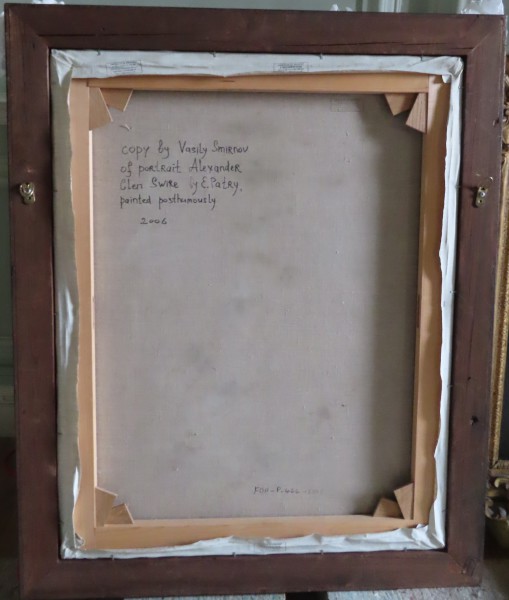 copy by Vasily Smirnov
of portrait Alexander
Glen Swire by E. Patry,
painted posthumously
2006